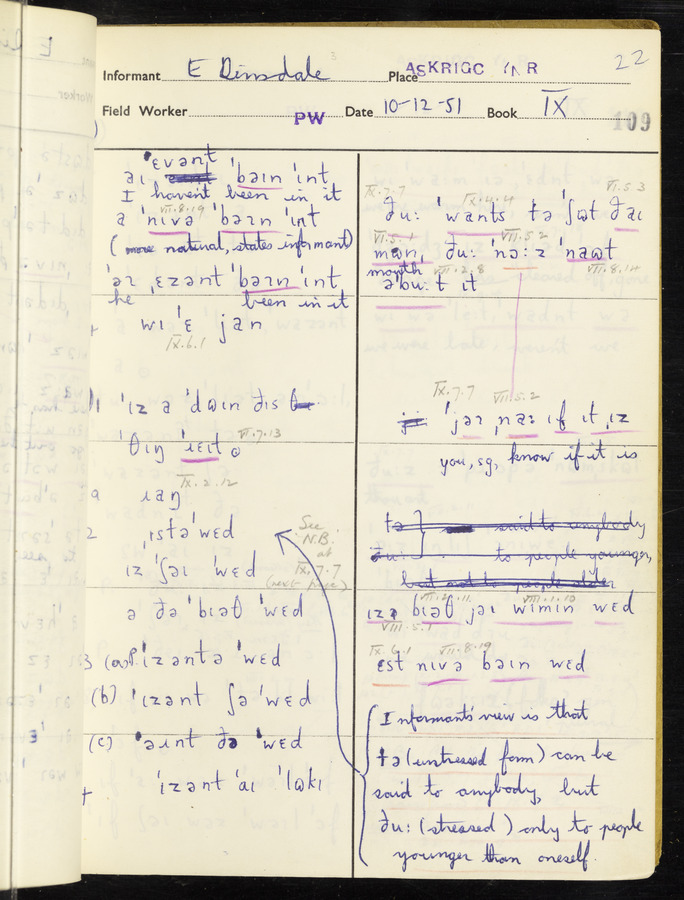 22
Informant E Dinsdale Place ASKRIGG Y N R
Field Worker PW Date 10-12-51 Book IX
109
ˈɛvənt
aɪ ˈbəɪn ˈɪnt
I haven't been in it
VII.8.19
a ˈnɪvə ˈbəɪn ˈɪnt
(more natural, states informant)
ˈəɪ ˌɛzənt ˈbəɪn ˈɪnt
he been in it
wɪ ˈɛ jan
IX.6.1
ˈɪz ə ˈdʊɪn ðɪs
VII.7.13
ˈθɪŋ ˈɹɛɪt
IX.2.12
a ɹaŋ
2 ˌɪstə ˈwɛd
See
N.B.
at
IX.7.7
(next page)
ɪz ˈʃəɪ ˈwɛd
ə ðə ˈbɪəθ ˈwɛd
3 (a) ˈɪzəntə ˈwɛd
(b) ˈɪzənt ʃə ˈwɛd
(c) ˈəɪnt ðə ˈwɛd
ˈɪzənt ˈaɪ ˈlʊkɪ
IX.7.7 IX.4.4 VI.5.3
ðu: ˈwants tə ˈʃʊt ðaɪ
VI.5.1 VII.5.2
mʊn, ðu: ˈnə:z ˈnaʊt
mouth VII.2.8 VII.8.14
əˈbu:t ɪt
IX.7.7 VII.5.2
ˈjəɪ ˌna: ɪf ɪt ˌɪz
you, sg, know if it is
tə said to anybody
ðu: to people younger,
but not to people older
VII.2.11 VIII.1.10
ɪzə bɪəθ jəɪ wɪmɪn wɛd
VIII.5.1
IX.6.1 VII.8.19
ɛst nɪvə bəɪn wɛd
Informant's view is that
tə (unstressed form) can be
said to anybody, but
ðu: (stressed) only to people
younger than oneself.